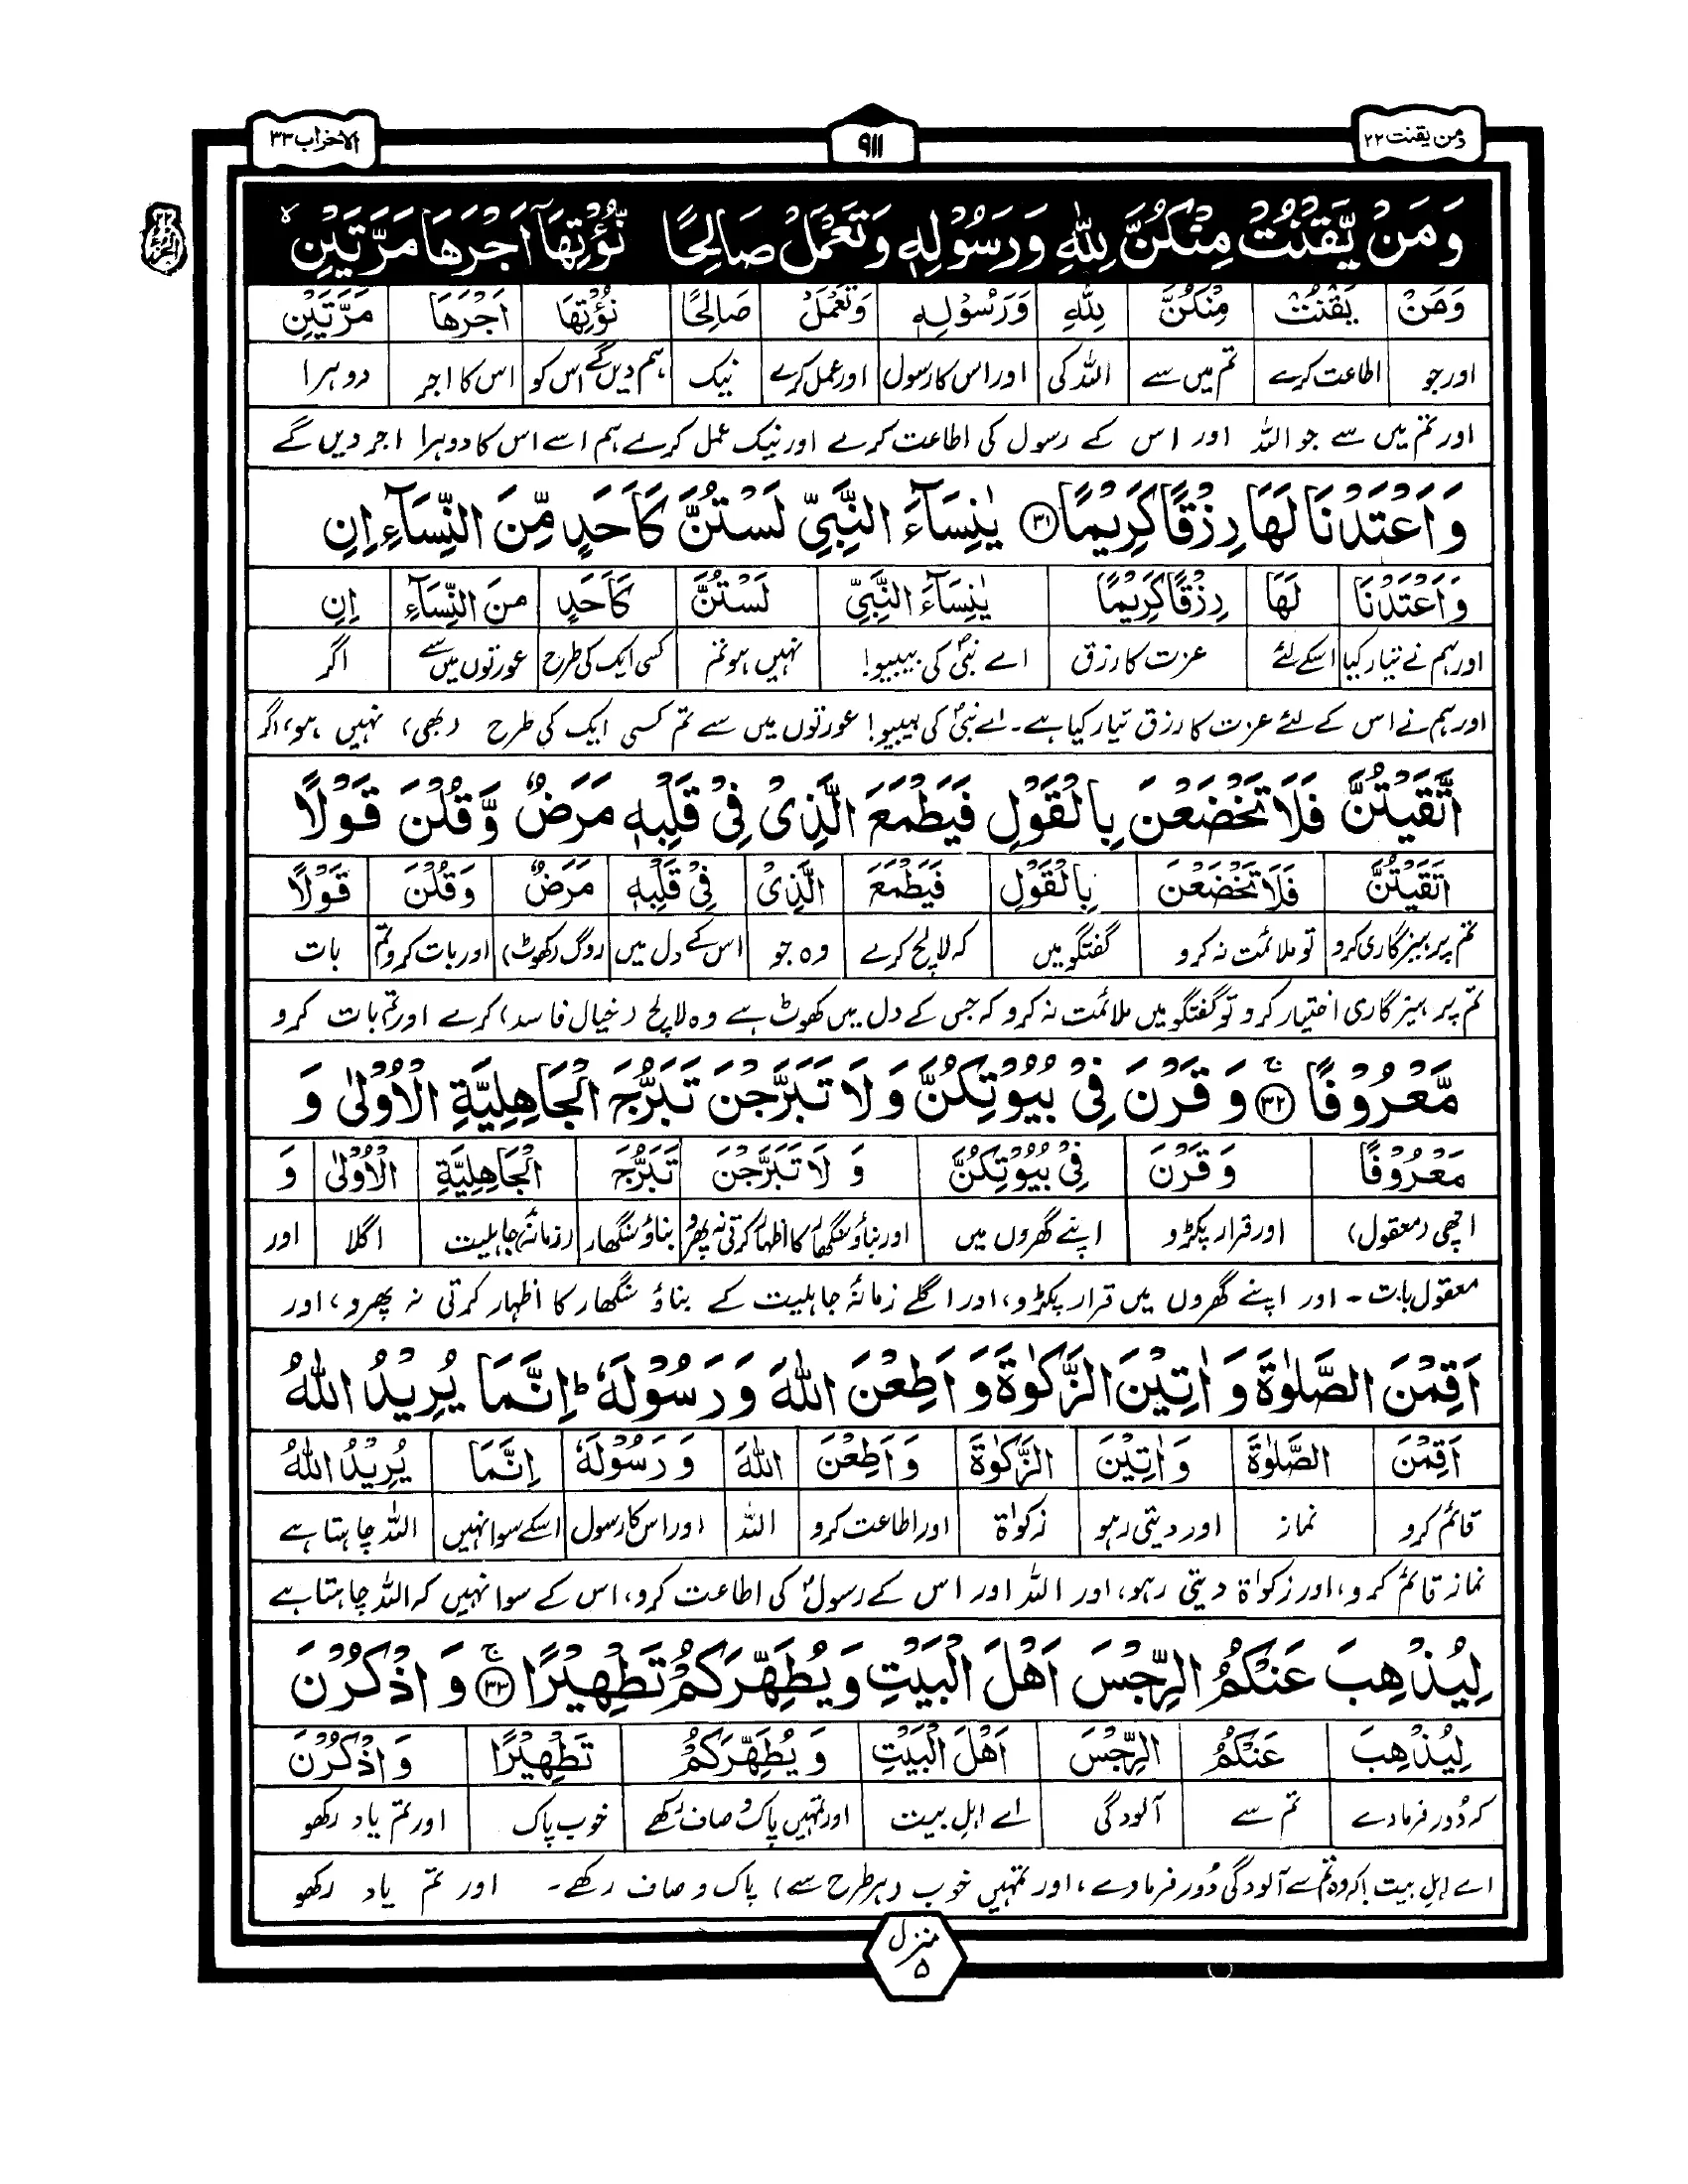 ومن یقنت ۲۲
۹۱۱
الاحزاب ۳۳
وَمَنْ يَّقْنُتْ مِنْكُنَّ لِلّٰهِ وَرَسُوْلِهٖ وَتَعْمَلْ صَالِحًا نُّؤْتِهَاۤ اَجْرَهَا مَرَّتَيْنِ ۙ
وَمَنْ يَقْنُتْ مِنْكُنَّ لِلّٰهِ وَرَسُوْلِهٖ وَتَعْمَلْ صَالِحًا نُؤْتِهَا اَجْرَهَا مَرَّتَيْنِ
اور جو اطاعت کرے تم میں سے اللہ کی اور اس کا رسول اور عمل کرے نیک ہم دیں گے اس کو اس کا اجر دوہرا
اور تم میں سے جو اللہ اور اس کے رسول کی اطاعت کرے اور نیک عمل کرے ہم اسے اس کا دوہرا اجر دیں گے
وَاَعْتَدْنَا لَهَا رِزْقًا كَرِيْمًا ۳۱ يٰنِسَآءَ النَّبِيِّ لَسْتُنَّ كَاَحَدٍ مِّنَ النِّسَآءِ اِنِ
وَاَعْتَدْنَا لَهَا رِزْقًا كَرِيْمًا يٰنِسَآءَ النَّبِيِّ لَسْتُنَّ كَاَحَدٍ مِنَ النِّسَآءِ اِنِ
اور ہم نے تیار کیا اسکے لئے عزت کا رزق اے نبیؐ کی بیبیو! نہیں ہو تم کسی ایک کی طرح عورتوں میں سے اگر
اور ہم نے اس کے لئے عزت کا رزق تیار کیا ہے۔ اے نبیؐ کی بیبیو! عورتوں میں سے تم کسی ایک کی طرح (بھی) نہیں ہو، اگر
اتَّقَيْتُنَّ فَلَا تَخْضَعْنَ بِالْقَوْلِ فَيَطْمَعَ الَّذِىْ فِىْ قَلْبِهٖ مَرَضٌ وَّقُلْنَ قَوْلًا
اتَّقَيْتُنَّ فَلَا تَخْضَعْنَ بِالْقَوْلِ فَيَطْمَعَ الَّذِىْ فِىْ قَلْبِهٖ مَرَضٌ وَقُلْنَ قَوْلًا
تم پرہیزگاری کرو تو ملائمت نہ کرو گفتگو میں کہ لالچ کرے وہ جو اس کے دل میں روگ (کھوٹ) اور بات کرو تم بات
تم پرہیزگاری اختیار کرو تو گفتگو میں ملائمت نہ کرو کہ جس کے دل میں کھوٹ ہے وہ لالچ (خیال فاسد) کرے اور تم بات کرو
مَّعْرُوْفًا ۳۲ وَقَرْنَ فِىْ بُيُوْتِكُنَّ وَلَا تَبَرَّجْنَ تَبَرُّجَ الْجَاهِلِيَّةِ الْاُوْلٰى وَ
مَعْرُوْفًا وَقَرْنَ فِىْ بُيُوْتِكُنَّ وَ لَا تَبَرَّجْنَ تَبَرُّجَ الْجَاهِلِيَّةِ الْاُوْلٰى وَ
اچھی (معقول) اور قرار پکڑو اپنے گھروں میں اور بناؤ سنگھار کا اظہار کرتی نہ پھرو بناؤ سنگھار زمانۂ جاہلیت اگلا اور
معقول بات۔ اور اپنے گھروں میں قرار پکڑو، اور اگلے زمانۂ جاہلیت کے بناؤ سنگھار کا اظہار کرتی نہ پھرو، اور
اَقِمْنَ الصَّلٰوةَ وَاٰتِيْنَ الزَّكٰوةَ وَاَطِعْنَ اللّٰهَ وَرَسُوْلَهٗ ؕ اِنَّمَا يُرِيْدُ اللّٰهُ
اَقِمْنَ الصَّلٰوةَ وَاٰتِيْنَ الزَّكٰوةَ وَاَطِعْنَ اللّٰهَ وَرَسُوْلَهٗ اِنَّمَا يُرِيْدُ اللّٰهُ
قائم کرو نماز اور دیتی رہو زکوٰۃ اور اطاعت کرو اللہ اور اس کا رسول اسکے سوا نہیں اللہ چاہتا ہے
نماز قائم کرو، اور زکوٰۃ دیتی رہو، اور اللہ اور اس کے رسولؐ کی اطاعت کرو، اس کے سوا نہیں کہ اللہ چاہتا ہے
لِيُذْهِبَ عَنْكُمُ الرِّجْسَ اَهْلَ الْبَيْتِ وَيُطَهِّرَكُمْ تَطْهِيْرًا ۳۳ وَاذْكُرْنَ
لِيُذْهِبَ عَنْكُمُ الرِّجْسَ اَهْلَ الْبَيْتِ وَيُطَهِّرَكُمْ تَطْهِيْرًا وَاذْكُرْنَ
کہ دُور فرما دے تم سے آلودگی اے اہلِ بیت اور تمہیں پاک و صاف رکھے خوب پاک اور تم یاد رکھو
اے اہلِ بیت! کہ وہ تم سے آلودگی دُور فرما دے، اور تمہیں خوب (ہر طرح سے) پاک و صاف رکھے۔ اور تم یاد رکھو
منزل ۵